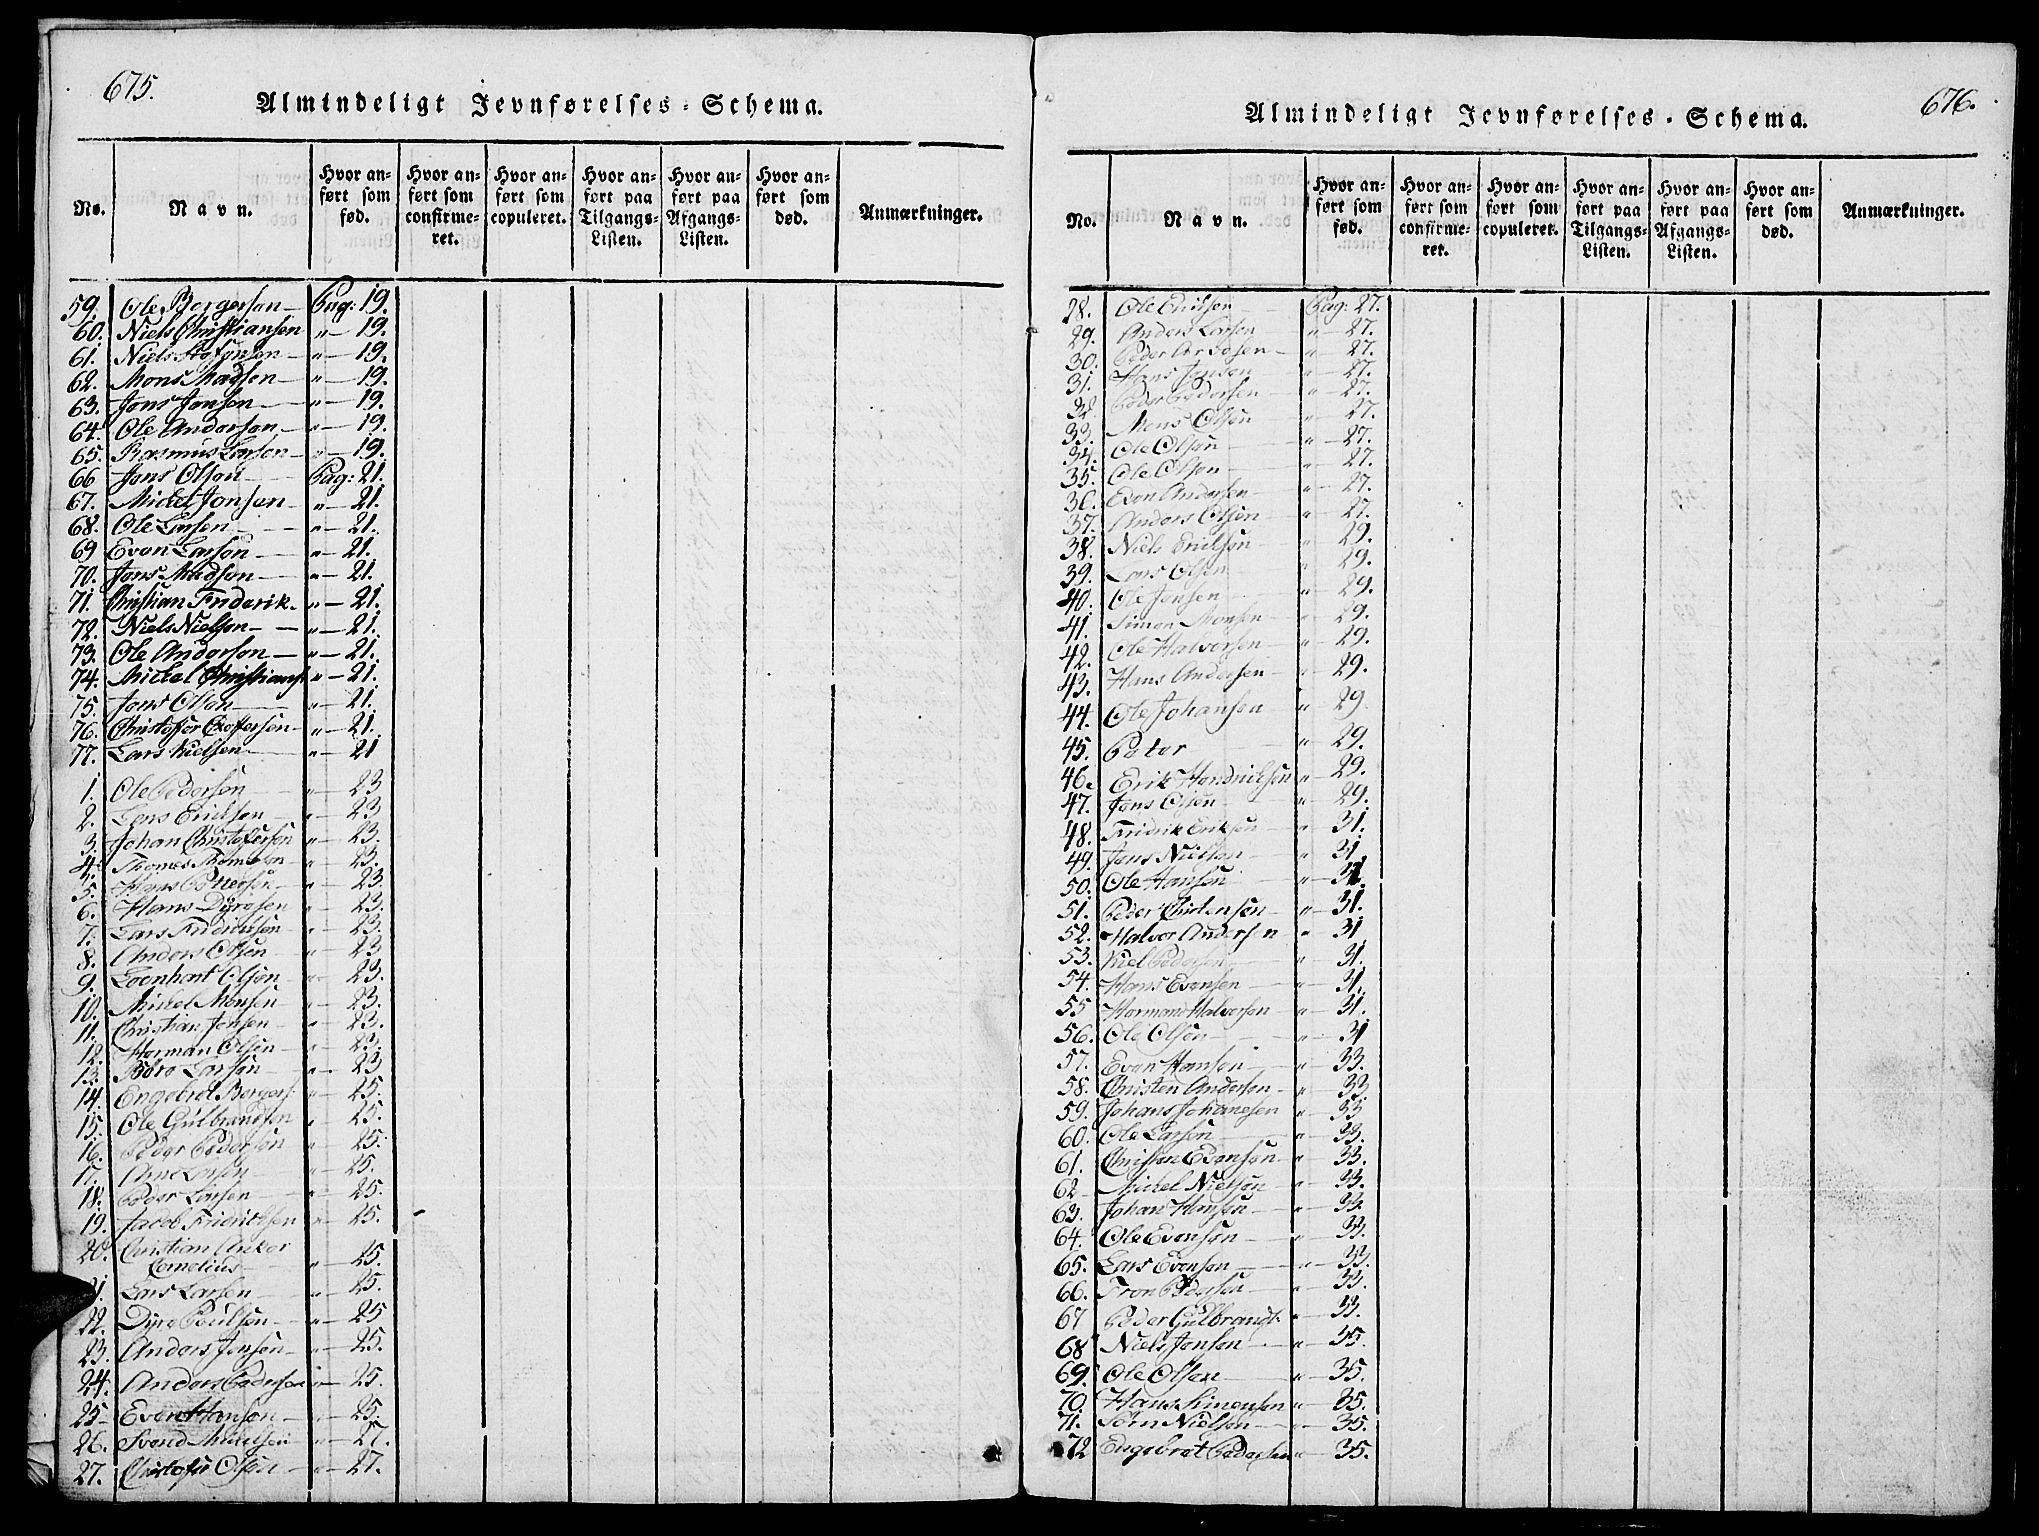 675.
Almindeligt Jevnførelses-Schema.
No.
Navn.
Hvor anført som fød.
Hvor anført som confirmeret.
Hvor anført som copuleret.
Hvor anført paa Tilgangs-Listen.
Hvor anført paa Afgangs-Listen.
Hvor anført som død.
Anmærkninger.
59. Ole Bergersen Pag: 19.
60. Niels Christiansen " 19.
61. Niels " 19.
62. Mons Madsen " 19.
63. Jens Jensen " 19.
64. Ole Andersen " 19.
65. Rasmus Larsen " 19.
66 Jens Olsen Pag: 21.
67. Mickel Jensen " 21.
68. Ole Larsen " 21.
69 Even Larsen " 21.
70. Jens Madsen " 21.
71. Christian Friderik " 21.
72. Niels Nielsen " 21.
73. Ole Andersen " 21.
74. Mickel Christians " 21.
75. Jens Olsen " 21.
76. Christoffer " 21.
77. Lars Nielsen " 21
1. Ole Pedersen " 23
2. Lars Ericksen " 23
3. Johan Christofersen " 23.
4. Thomes Thomesen " 23.
5. Hans Pettersen " 23.
6. Hans Dyresen " 23.
7. Lars Fridricksen " 23.
8. Anders Olsen " 23
9. Leenhart Olsen " 23.
10. Mickel Monsen " 23.
11. Christian Jensen " 23.
12. Herman Olsen " 23.
13. Larsen " 23
14. Engebret Bergers: " 25.
15. Ole Gulbrandsen " 25.
16. Peder Pedersen " 25.
17. Arne Larsen " 25.
18. Peder Larsen " 25.
19. Jacob Fridricksen " 25.
20. Christian Anker
Cornelius " 25.
21. Lars Larsen " 25.
22. Dyre Poulsen " 25
23. Anders Jensen " 25.
24. Anders Pedersen " 25.
25 Even Hansen " 25.
26. Svend Mickelsen " 27.
27. Christofer Olsen " 27.
676.
Almindeligt Jevnførelses-Schema.
No.
Navn.
Hvor anført som fød.
Hvor anført som confirmeret.
Hvor anført som copuleret.
Hvor anført paa Tilgangs-Listen.
Hvor anført paa Afgangs-Listen.
Hvor anført som død.
Anmærkninger.
28. Ole Ericksen Pag: 27.
29. Anders Larsen " 27.
30. Peder Arvesen " 27.
31. Hans Jensen " 27.
32 Peder Pedersen " 27.
33. Mons Olsen " 27.
34. Ole Olsen " 27.
35. Ole Olsen " 27.
36. Even Andersen " 27.
37. Anders Olsen " 27.
38. Niels Ericksen " 29.
39. Lars Olsen " 29.
40. Ole Jensen " 29.
41. Simon Monsen " 29.
42. Ole Halvorsen " 29.
43. Hans Andersen " 29.
44. Ole Johansen " 29.
45. Peter " 29.
46. Erik Hendricksen " 29.
47. Jens Olsen " 29.
48. Fridrik Eriksen " 31.
49. Jens Nielsen " 31.
50. Ole Hansen " 31.
51. Peder Christensen " 31.
52. Halvor Andersen " 31
53. Niel Pedersen " 31.
54. Hans Evensen " 31.
55 Hermans Halvorsen " 31.
56. Ole Olsen " 31
57. Even Hansen " 33.
58. Christen Andersen " 33
59. Johans Johanesen " 33
60. Ole Larsen " 33.
61. Christen Evensen " 33.
62 Mickel Nielsen " 33.
63. Johan Hansen " 33.
64. Ole Evensen " 33.
65. Lars Evensen " 33.
66. Tron Pedersen " 33.
67 Peder Gulbrands: " 33.
68 Niels Jensen " 35.
69. Ole Olsen " 35.
70. Hans Simensen " 35.
71. Sørn Nielsen " 35.
72 Engebret Pedersen " 35.